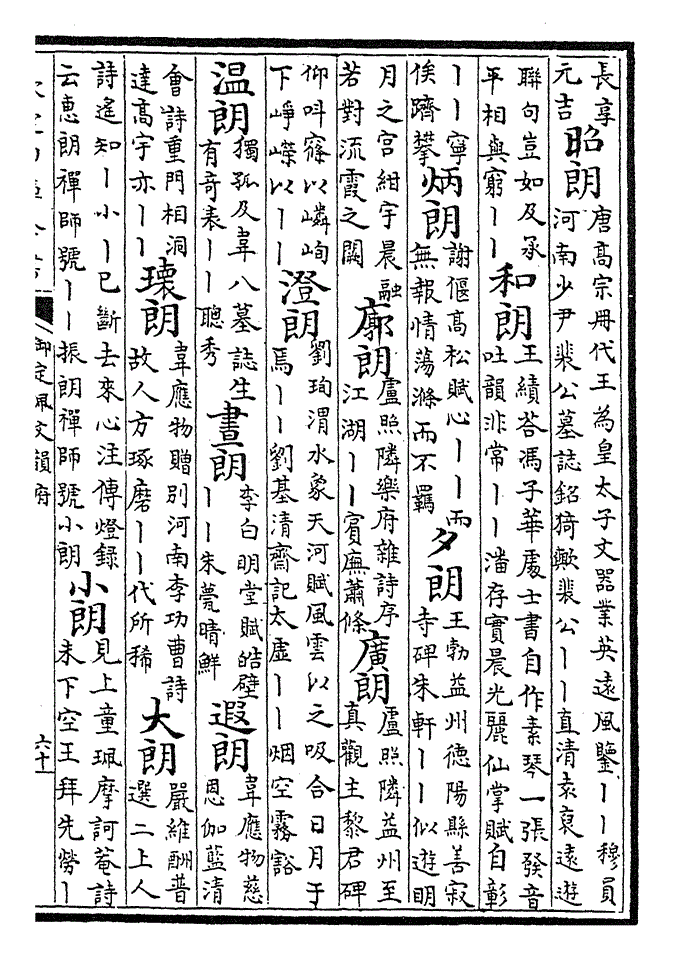 長享
元吉
昭朗
唐髙宗冊代王為皇太子文器業英遠風鑒丨丨穆員
河南少尹裴公墓誌銘猗歟裴公丨丨直清袁袞遠遊
聯句豈如及承
平相與窮丨丨
和朗
王績荅馮子華處士書自作素琴一張發音
吐韻非常丨丨潘存實晨光麗仙掌賦自彰
丨丨寧
俟躋攀
炳朗
謝偃髙松賦心丨丨而
無報情蕩滌而不羈
夕朗
王勃益州德陽縣善寂
寺碑朱軒丨丨似遊明
月之宫紺宇晨融
若對流霞之闕
廓朗
盧照隣樂府雜詩序
江湖丨丨賓廡蕭條
廣朗
盧照隣益州至
真觀主黎君碑
仰叫窱以嶙峋
下崢嶸以丨丨
澄朗
劉珣渭水象天河賦風雲以之吸合日月于
焉丨丨劉基清齋記太虛丨丨烟空霧豁
温朗
獨孤及韋八墓誌生
有奇表丨丨聰秀
晝朗
李白明堂賦皓壁
丨丨朱甍晴鮮
遐朗
韋應物慈
恩伽藍清
會詩重門相洞
達髙宇亦丨丨
瓌朗
韋應物贈别河南李功曹詩
故人方琢磨丨丨代所稀
大朗
嚴維酬普
選二上人
詩遙知丨小丨已斷去來心注傳燈錄
云惠朗禪師號丨丨振朗禪師號小朗
小朗
見上童珮摩訶菴詩
未下空王拜先勞丨
御定佩文韻府
六十